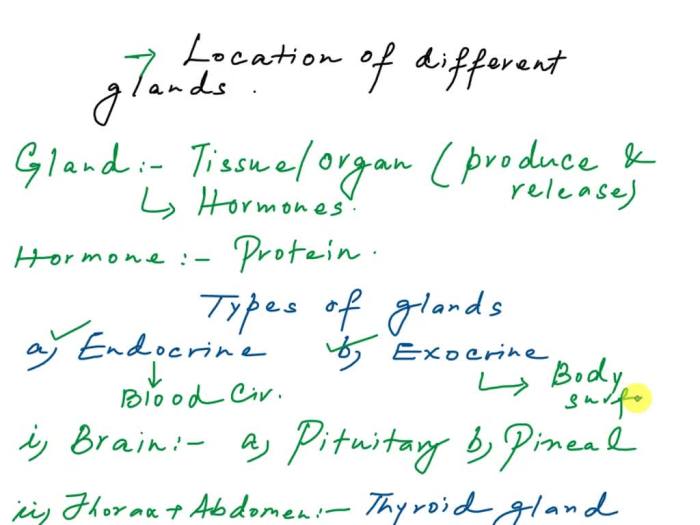 → Location of different
glands.
Gland:- Tissue/organ (produce &
release)
↳ Hormones.
Hormone:- Protein.
Types of glands
a) Endocrine b) Exocrine
↓ Blood Cir. ↳ Body
surf
i) Brain:- a) Pituitary b) Pineal
ii) Thorax + Abdomen:- Thyroid gland